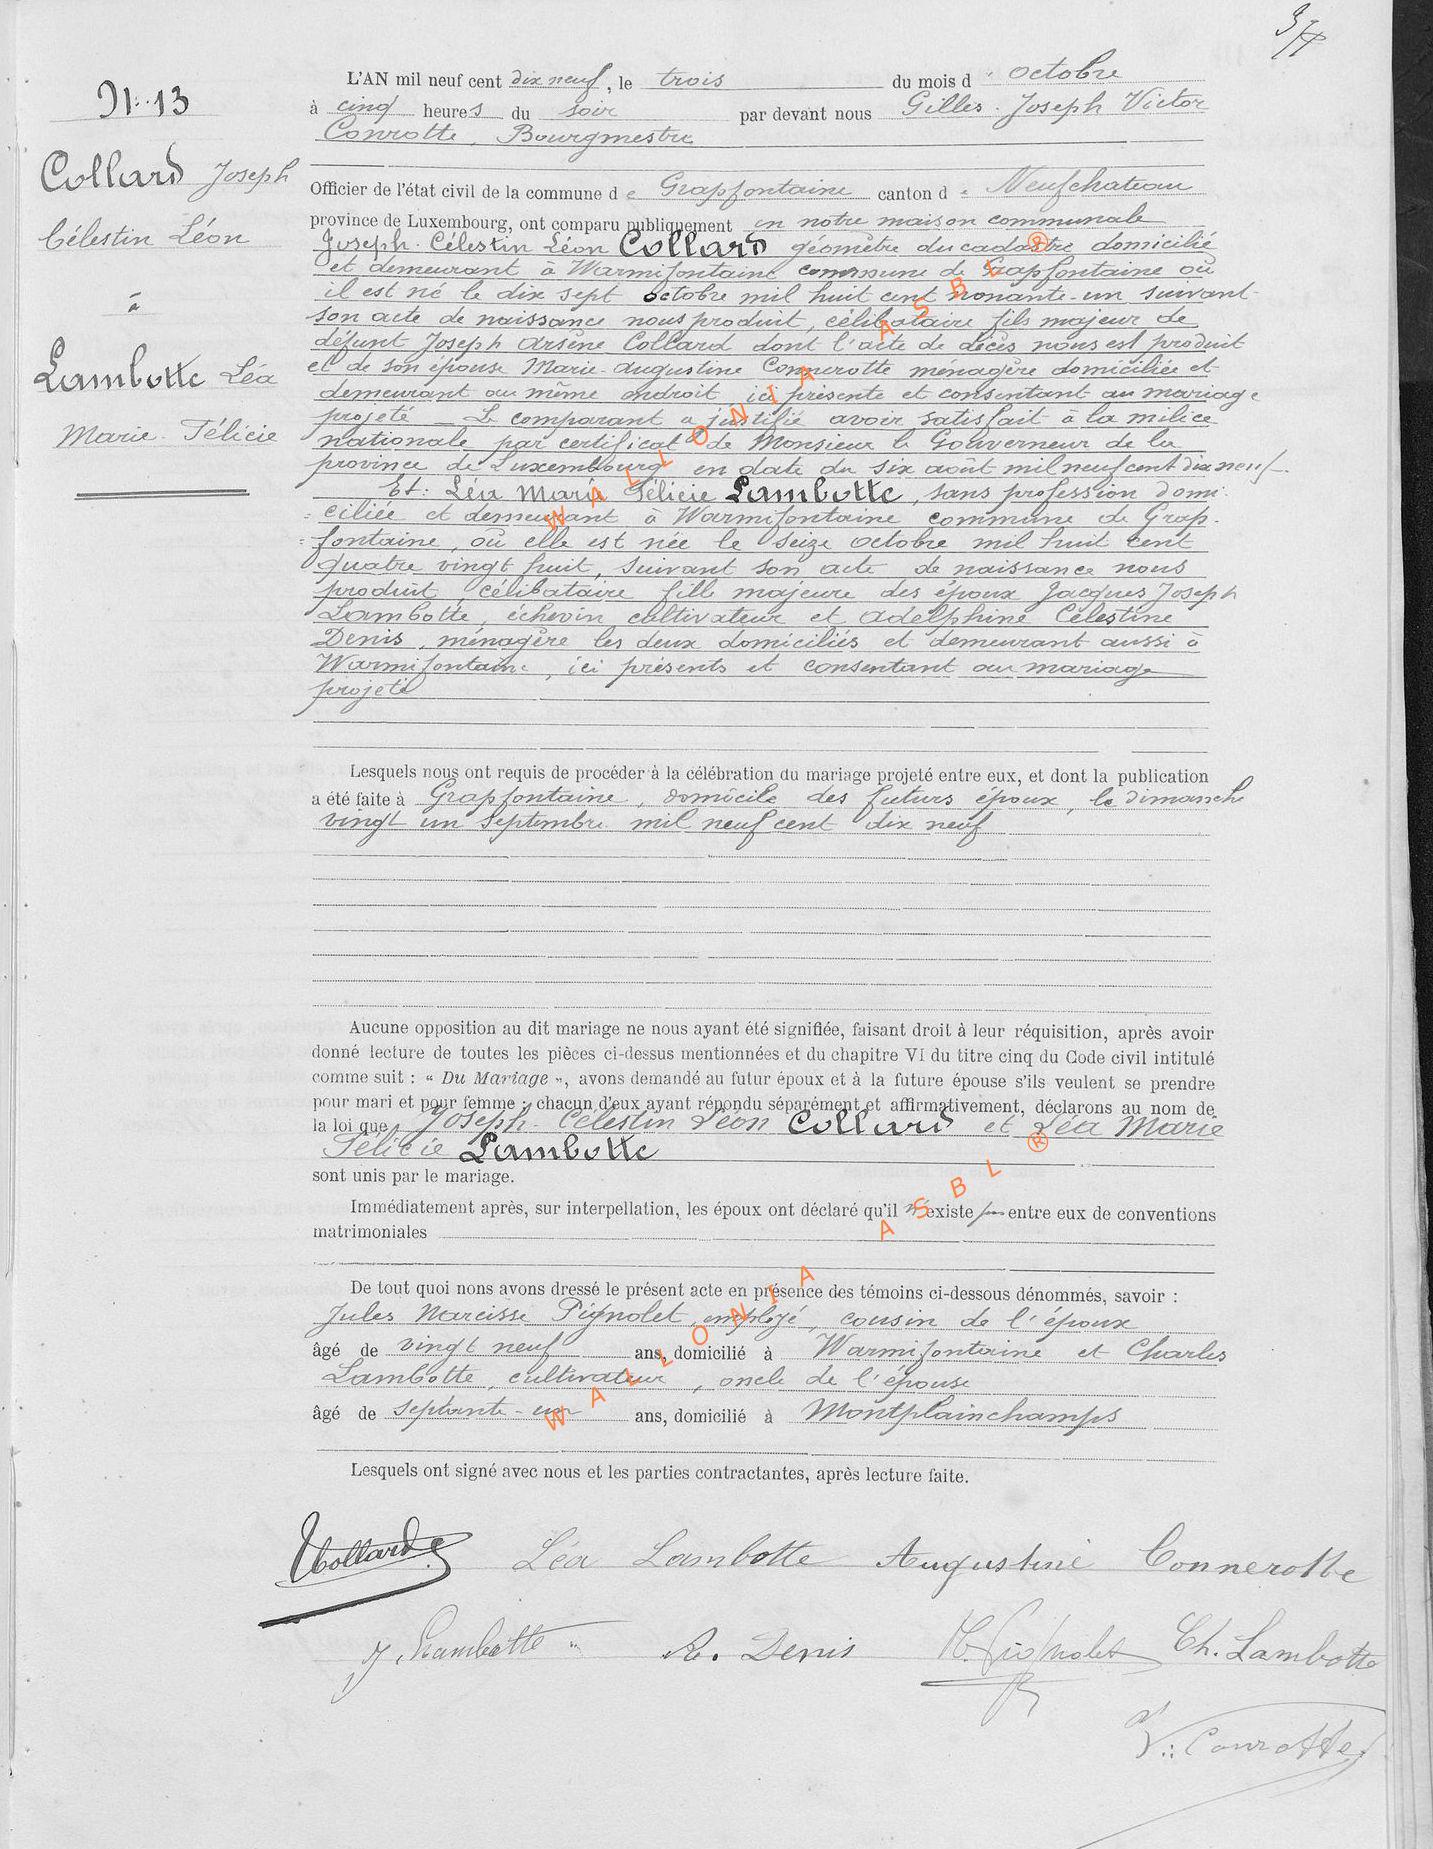 L'AN mil neuf cent dix neuf, le trois du mois d'octobre
à cinq heures du soir par devant nous Gilles-Joseph Victor
Conrotte, Bourgmestre
N°: 13
Collard Joseph
Célestin Léon
à
Lambotte Léa
Marie-Félicie
Officier de l'état civil de la commune de Grapfontaine canton de Neufchateau
province de Luxembourg, ont comparu publiquement en notre maison communale
Joseph-Célestin Léon Collard géomètre du cadastre domicilié
et demeurant à Warmifontaine commune de Grapfontaine où
il est né le dix sept octobre mil huit cent nonante-un suivant
son acte de naissance nous produit, célibataire fils majeur de
défunt Joseph Arsène Collard dont l'acte de décès nous est produit
et de son épouse Marie-Augustine Connerotte ménagère domiciliée et
demeurant au même endroit ici présente et consentant au mariage
projeté _ Le comparant a justifié avoir satisfait à la milice
nationale par certificat de Monsieur le Gouverneur de la
province de Luxembourg en date du six août mil neuf cent dix neuf_
Et: Léa Marie Félicie Lambotte, sans profession domi-
ciliée et demeurant à Warmifontaine commune de Grap-
fontaine, où elle est née le seize octobre mil huit cent
quatre vingt huit, suivant son acte de naissance nous
produit, célibataire fille majeure des époux Jacques Joseph
Lambotte, échevin cultivateur et Adelphine Célestine
Denis, ménagère les deux domiciliés et demeurant aussi à
Warmifontaine, ici présents et consentant au mariage
projeté
Lesquels nous ont requis de procéder à la célébration du mariage projeté entre eux, et dont la publication
a été faite à Grapfontaine, domicile des futurs époux, le dimanche
vingt un septembre mil neuf cent dix neuf
Aucune opposition au dit mariage ne nous ayant été signifiée, faisant droit à leur réquisition, après avoir
donné lecture de toutes les pièces ci-dessus mentionnées et du chapitre VI du titre cinq du Code civil intitulé
comme suit : « Du Mariage », avons demandé au futur époux et à la future épouse s'ils veulent se prendre
pour mari et pour femme ; chacun d'eux ayant répondu séparément et affirmativement, déclarons au nom de
la loi que Joseph-Célestin Léon Collard et Léa Marie
Félicie Lambotte
sont unis par le mariage.
Immédiatement après, sur interpellation, les époux ont déclaré qu'il n'existe pas entre eux de conventions
matrimoniales
De tout quoi nons avons dressé le présent acte en présence des témoins ci-dessous dénommés, savoir :
Jules Narcisse Pignolet, employé, cousin de l'époux
âgé de vingt neuf ans, domicilié à Warmifontaine et Charles
Lambotte, cultivateur, oncle de l'épouse
âgé de septante-un ans, domicilié à Montplainchamps
Lesquels ont signé avec nous et les parties contractantes, après lecture faite.
Collard Léa Lambotte Augustine Connerotte
J. Lambotte A. Denis N. Pignolet Ch. Lambotte
V. Conrotte
WALLONIA ASBL ®
WALLONIA ASBL ®